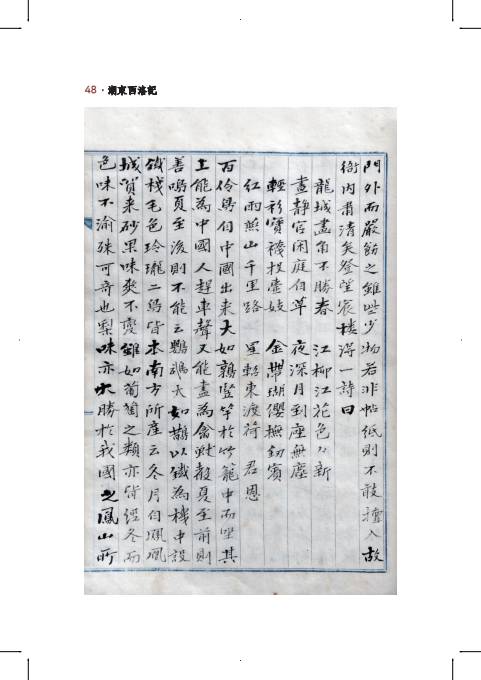 48 · 湖東西洛記
門外而嚴飭之雖些少物若非帖紙則不敢擅入故
衙内肅清矣登望宸樓得一詩曰
龍城畫角不勝春 江柳江花色色新
晝静官闲庭自草 夜深月到座無塵
輕衫寶襪杖虛妓 金帶瑚纓撫劒賓
紅雨燕山千里路 星軺東渡荷 君恩
百伶鳥自中國出来大如鶉竪竿於竹籠中而坐其
上能為中國人趕車聲又能盡為禽獸聲夏至前則
善鳴夏至後則不能云鸚鵡大如鵲以鐵為機中設
鐵棧毛色玲瓏二鳥皆本南方所産云冬月自鳳凰
城貿来砂果味爽不變雖如葡萄之類亦皆經冬而
色味不渝殊可奇也梨味亦大勝於我國之鳳山所